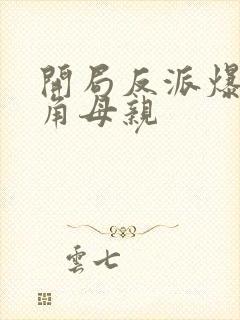 開局反派爆
角母親
雲七